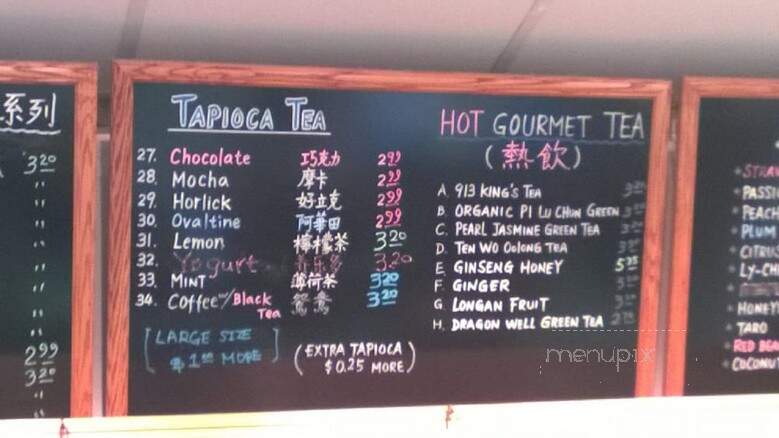 系列
3.20
"
"
"
"
"
"
"
2.99
3.20
"
TAPIOCA TEA
27. Chocolate 巧克力 2.99
28. Mocha 摩卡 2.99
29. Horlick 好立克 2.99
30. Ovaltine 阿華田 2.99
31. Lemon 檸檬茶 3.20
32. Yogurt 3.20
33. MINT 薄荷茶 3.20
34. Coffee w/ Black Tea 鴛鴦 3.20
[LARGE SIZE
$1.00 MORE]
(EXTRA TAPIOCA
$0.25 MORE)
HOT GOURMET TEA
(熱飲)
A. 913 KING'S TEA
B. ORGANIC PI LU CHUN GREEN
C. PEARL JASMINE GREEN TEA
D. TEN WO OOLONG TEA
E. GINSENG HONEY
F. GINGER
G. LONGAN FRUIT
H. DRAGON WELL GREEN TEA
menupix
PEACH
PLUM
HONEY
TARO
RED BEA
COCONUT